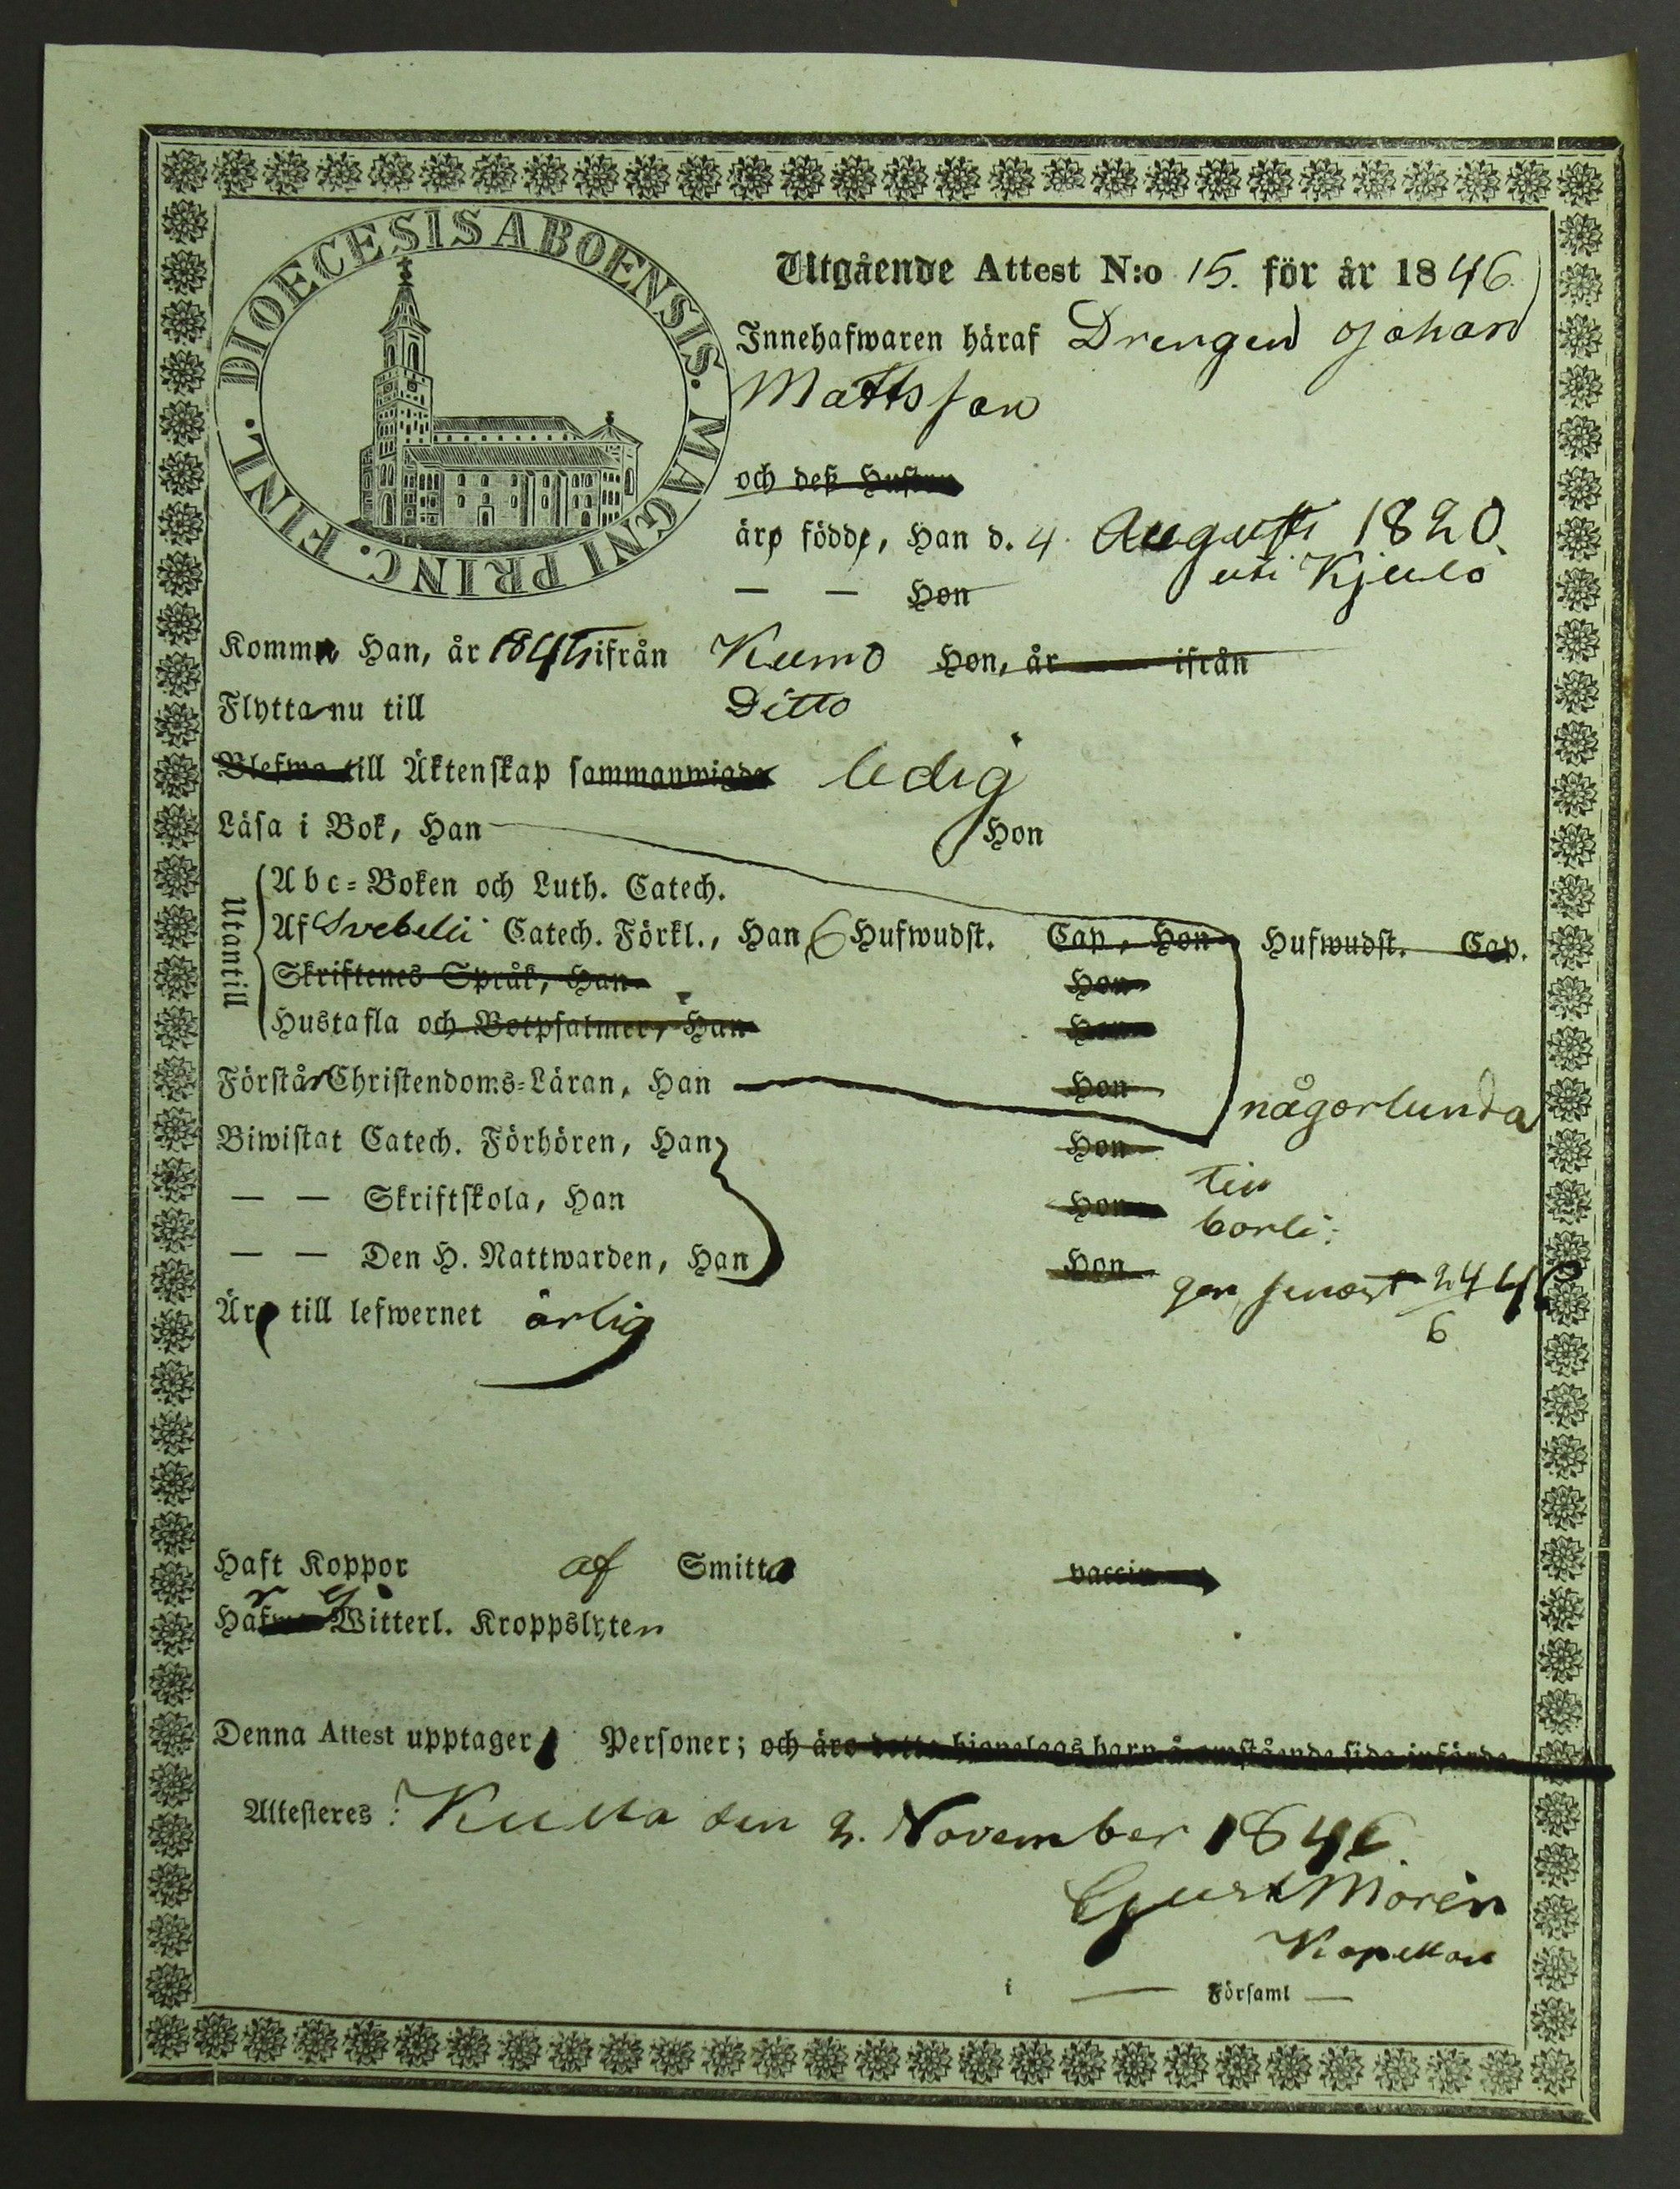 DIOECESIS ABOENSIS. MAGNI PRINC. FINL.
Utgående Attest N:o 15. för år 1846.
Innehafwaren häraf Drengen Johan
Mattsson
och deß Hustru
äro födde, Han d. 4 Augusti 1820.
uti Kjulo
— — Hon
Komm Han, år 1845 ifrån Kumo Hon, år ifrån
Flytta nu till Ditto
Blefwo till Äktenskap sammanwigde ledig
Läsa i Bok, Han Hon
Utantill
Abc-Boken och Luth. Catech.
Af Svebelii Catech. Förkl., Han 6 Hufwudst. Cap, Hon Hufwudst. Cap.
Skriftenes Språk, Han Hon
Hustafla och Botpsalmer, Han Hon
Förstår Christendoms-Läran, Han Hon någorlunda
Biwistat Catech. Förhören, Han Hon
— — Skriftskola, Han Hon til
borli:
— — Den H. Nattwarden, Han Hon gen senast 24/6 46
Äro till lefwernet ärlig
Haft Koppor af Smitta vaccin
Hafwa r ej Witterl. Kroppslyten
Denna Attest upptager 1 Personer; och äro detta hjonelags barn å omstående sida införde
Attesteres: Kulla den 2. November 1846
Gust Morén
Kapellan
i — Församl —